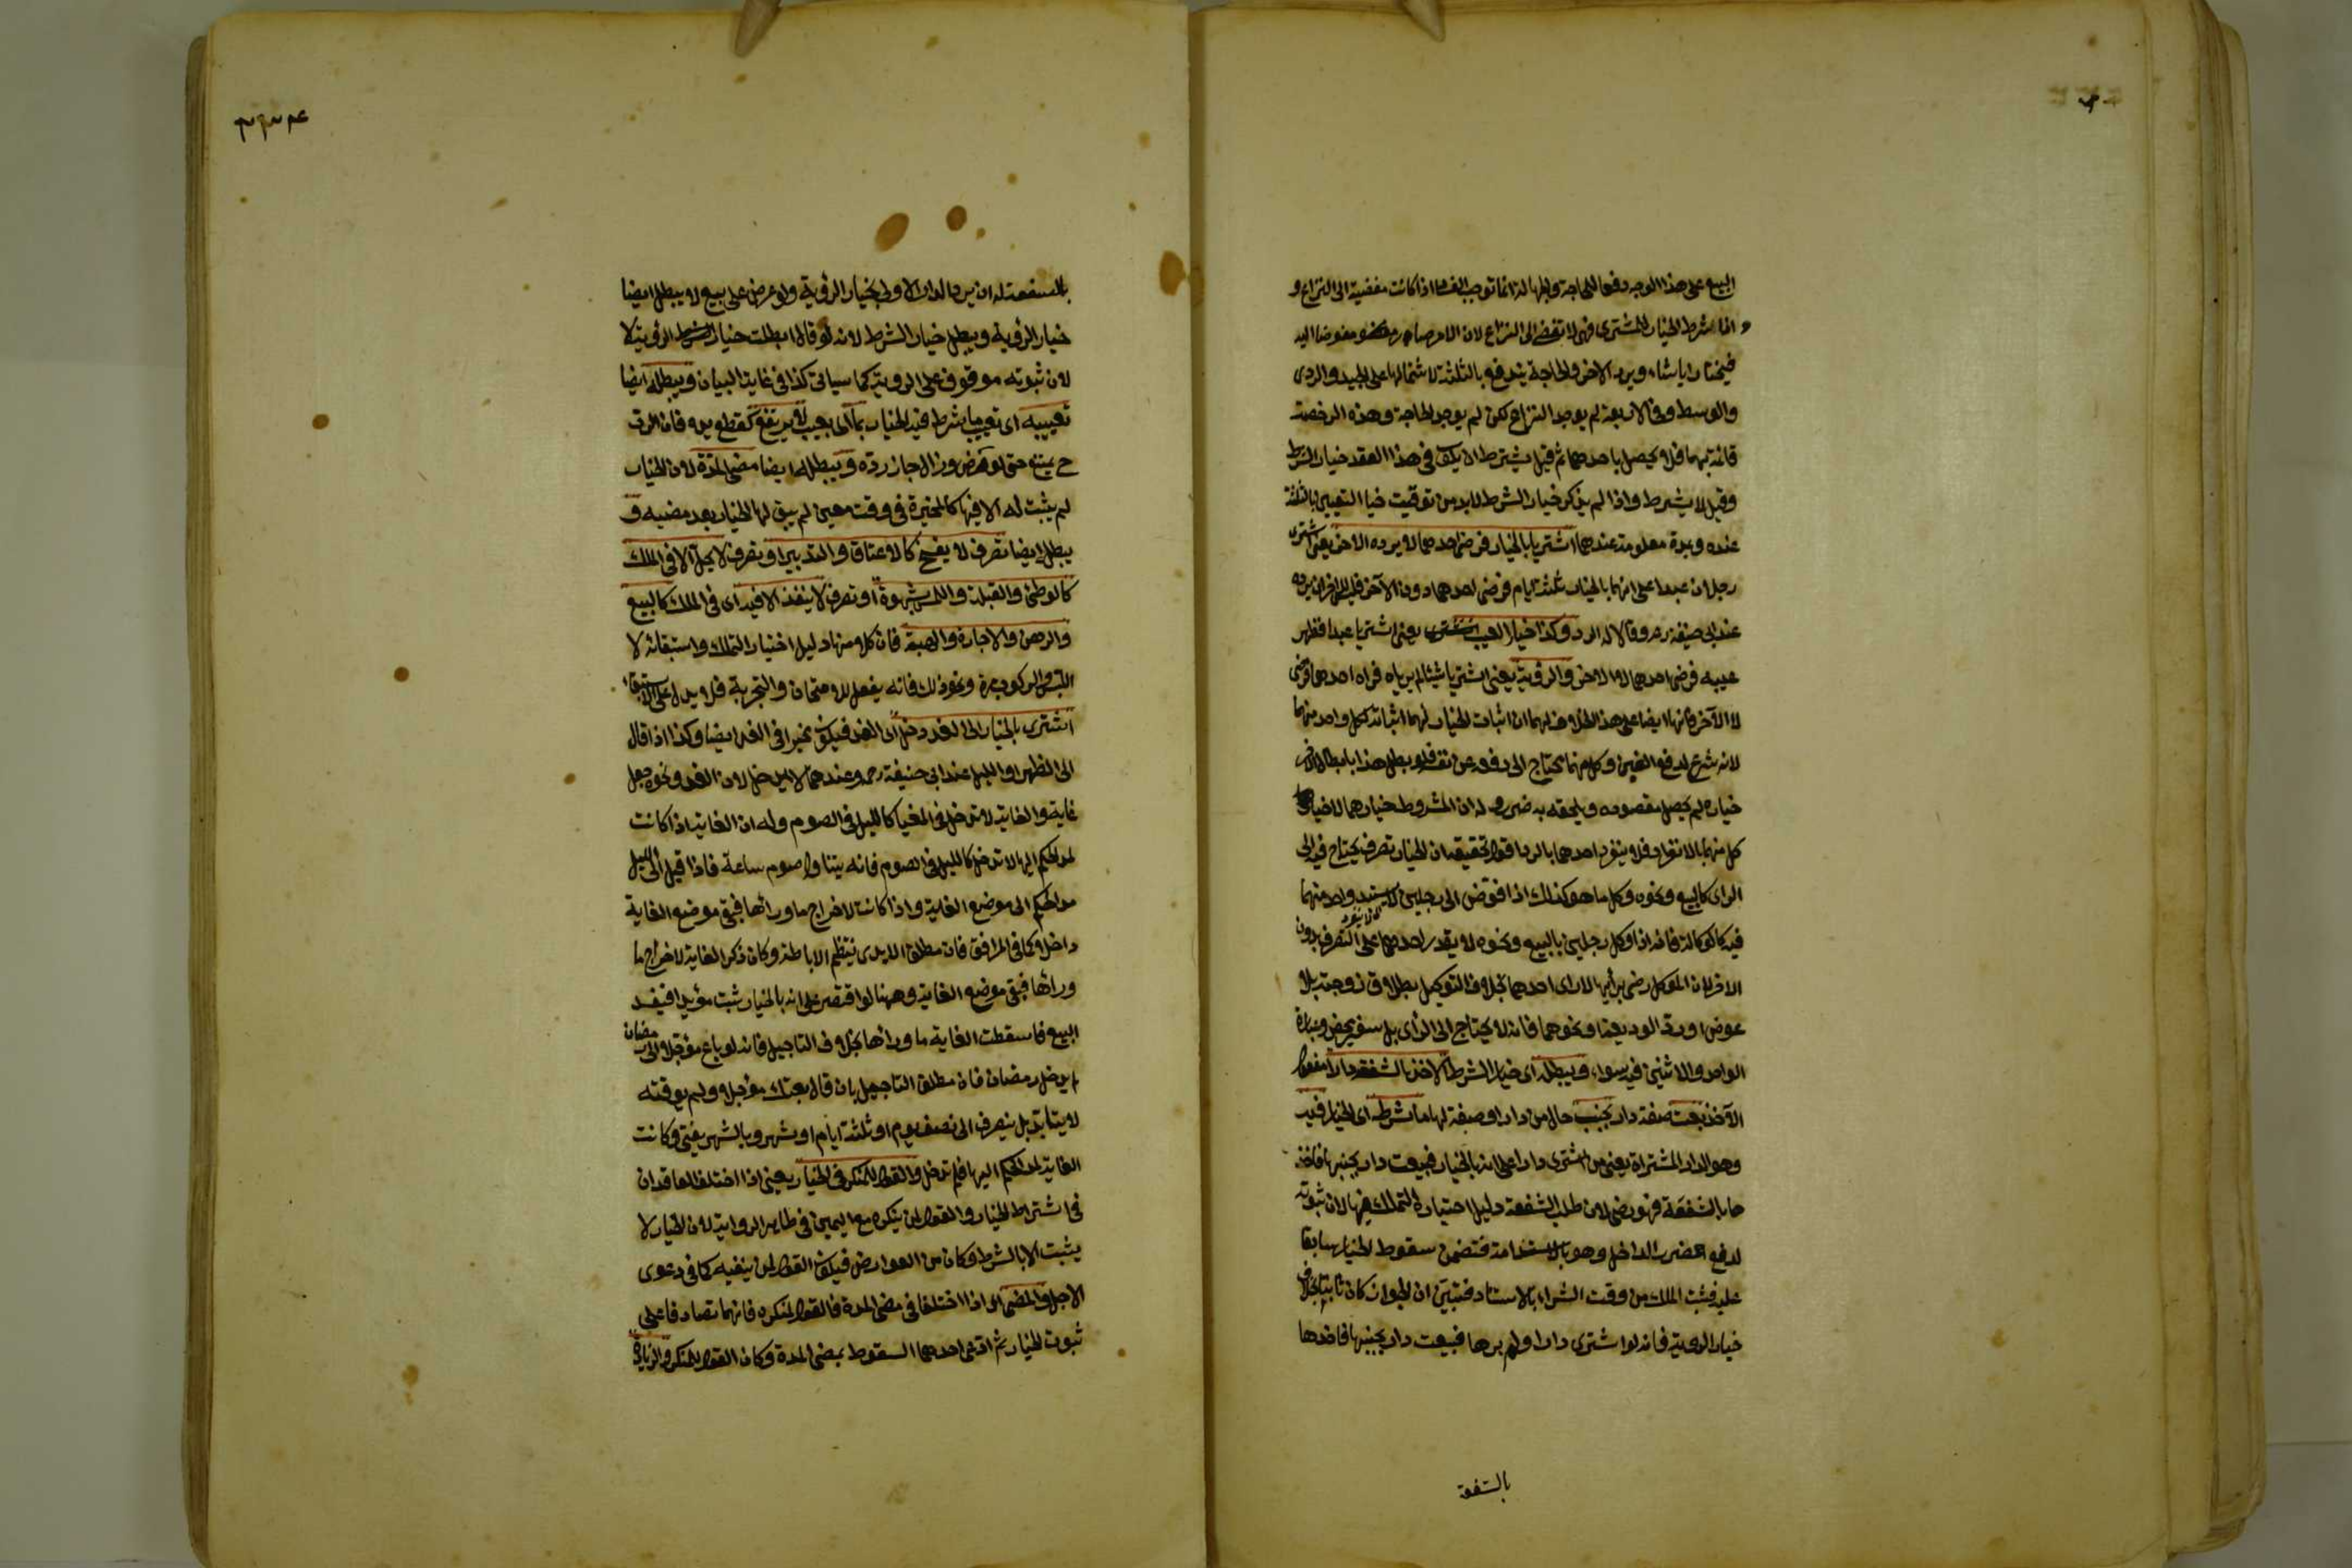 البيع على هذا الوجه دفعا للحاجة والجهالة انما توجب الفساد اذا كانت مفضية الى النزاع و
اذا شرط الخيار للمشترى فهى لا تفضى الى النزاع لان الامر صار مفوضا اليه
فيختار ايا شاء ويرد الاخر والحاجة يندفع بالثلثة لاشتمالها على الجيد والردى
والوسط وفى الاربعة لم يوجد النزاع لكن لم يوجد الحاجة وهذه الرخصة
قائمة بهما فلا يحصل باحدهما ثم قيل يشترط ان يكون فى هذا العقد خيار الشرط
وقيل لا يشترط واذا لم يذكر خيار الشرط لابد من توقيت خيار التعيين بالثلثة
عنده وبمدة معلومة عندهما اشتريا بالخيار فرضى احدهما لا يرده الاخر يعنى اشترى
رجلان عبدا على انهما بالخيار ثلثة ايام فرضى احدهما دون الآخر فليس للاخر ان يرده
عند ابى حنيفة رح وقالا له الرد وكذا خيار العيب يعنى اشتريا عبدا فظهر
عيبه فرضى احدهما لا الاخر والرؤية يعنى اشتريا شيئا لم يرياه فراه احدهما فرضى
لا الآخر فانها ايضا على هذا الخلاف لهما ان اثبات الخيار لهما اثباته لكل واحد منهما
لانه شرع لدفع الغبن وكل منهما يحتاج الى دفعه عن نفسه فلو بطل هذا بابطال الاخر
خياره لم يحصل مقصوده ويلحقه به ضرر وله ان المشروط خيارهما لا خيار
كل منهما بالانفراد فلا ينفرد احدهما بالرد اقول تحقيقه ان الخيار تصرف يحتاج فيه الى
الراى كالبيع ونحوه وكل ما هو كذلك اذا فوض الى رجلين لا يستبد واحد منهما
فيه كالوكالة فانه اذا وكل رجلين بالبيع ونحوه لا يقدر احدهما على التصرف بدون
الاخر لان الموكل رضى برأيهما لا راى احدهما بخلاف التوكيل بطلاق زوجته بلا
عوض او رد الوديعة ونحوهما فانه لا يحتاج الى الرأى بل سفير محض وعبارة
الواحد والاثنين فيه سواء ويبطله اى خيار الشرط الاخذ بالشفعة دارا مفعول
الآخذ بيعت صفة دار بجنب حال من دارا وصفة لها ما شرط اى الخيار فيه
وهو الدار المشتراة يعنى من اشترى دارا على انه بالخيار فبيعت دار بجنبها فاخذ
ها بالشفعة فهو رضى لان طلب الشفعة دليل اختياره التملك فيها لان ثبوته
لدفع الضرر الداخل وهو بالاستدامة فتضمن سقوط الخيار سابقا
عليه فيثبت الملك من وقت الشراء بالاستناد فتبين ان الجوار كان ثابتا بخلاف
خيار الرؤية فانه لو اشترى دارا ولم يرها فبيعت دار بجنبها فاخذها
بالشفعة
٣٣٤
بالشفعة له ان يرد الدار الاولى بخيار الرؤية ولو عرض على بيع لا يبطل ايضا
خيار الرؤية ويبطل خيار الشرط لانه لو قال ابطلت خيار الرؤية لا
لان ثبوته موقوف على الروية كما سياتى كذا فى غاية البيان ويبطله ايضا
تعييبه اى تعييب ما شرط فيه الخيار بما اى بعيب لا يرتفع كقطع يده فان الرد
ح يمتنع حتى لو مرض وزال جاز رده ويبطله ايضا مضى المدة لان الخيار
لم يثبت له الا فيها كالمخيرة فى وقت معين لم يبق لها الخيار بعد مضيه و
يبطل ايضا تصرف لا يفسخ كالاعتاق والتدبير او تصرف لا يحل الا فى الملك
كالوطئ والقبلة واللمس بشهوة او تصرف لا ينفذ الا فيه اى فى الملك كالبيع
والرهن والاجارة والهبة فان كلا منها دليل اختيار التملك واستبقائه لا
اللبس والركوب مرة ونحو ذلك فانه يفعل للامتحان والتجربة فلا يدل على الاستبقاء
اشترى بالخيار الى الغد دخل اى الغد فيكون مخيرا فى الغد ايضا وكذا اذا قال
الى الظهر او الليل عند ابى حنيفة رح وعندهما لا يدخل لان الغد ونحوه جعل
غاية والغاية لا تدخل فى المغيا كالليل فى الصوم وله ان الغاية اذا كانت
لمد الحكم اليها لا تدخل كالليل فى الصوم فانه يتناول صوم ساعة فاذا قيل الى الليل
مد الحكم الى موضع الغاية واذا كانت لاخراج ما ورائها فبقى موضع الغاية
داخلا كما فى المرافق فان مطلق الايدى ينتظم الاباط وكان ذكر الغاية لاخراج ما
ورائها فبقى موضع الغاية وههنا لو اقتصر على انه بالخيار ثبت مؤبدا فيفسد
البيع فاسقطت الغاية ما ورائها بخلاف التاجيل فانه لو باع مؤجلا الى رمضان
لم يدخل رمضان فان مطلق التاجيل بان قال بعتك مؤجلا ولم يوقته
لا يتابد بل ينصرف الى نصف يوم او ثلثة ايام او شهر وبالشهر يفتى وكانت
الغاية لمد الحكم اليها فلم تدخل والقول للمنكر فى الخيار يعنى اذا اختلف العاقدان
فى اشتراط الخيار والقول لمن ينكره مع اليمين فى ظاهر الرواية لان الخيار لا
يثبت الا بالشرط وكان من العوارض فيكون القول لمن ينفيه كما فى دعوى
الاجل والمضى اى اذا اختلفا فى مضى المدة فالقول لمنكره فانهما تصادقا على
ثبوت الخيار ثم ادعى احدهما السقوط بمضى المدة وكان القول للمنكر والزيادة